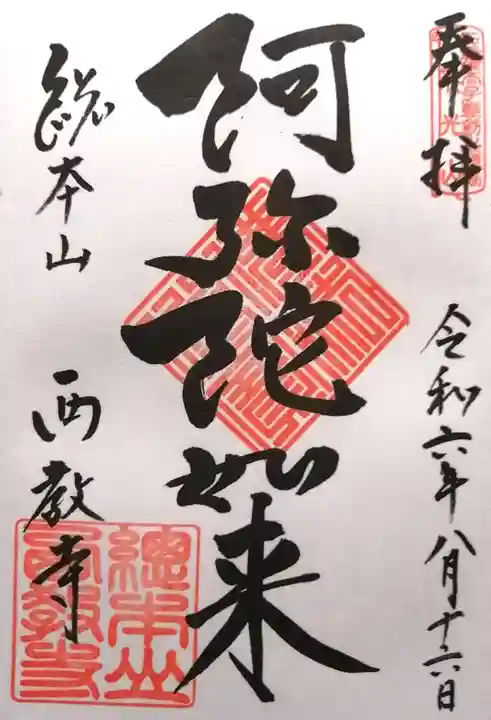 奉拝
令和六年八月十六日
阿弥陀如来
総本山
西教寺
總本山
西教寺